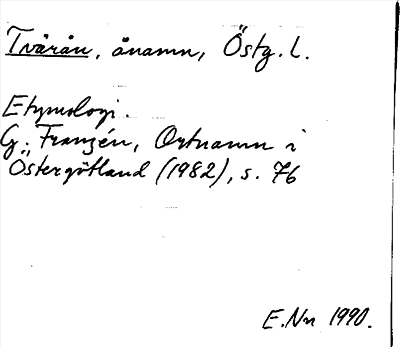 Tvärån, ånamn, Östg. l.
Etymologi.
G. Franzén, Ortnamn i
Östergötland (1982), s. 76
E. Nn 1990.